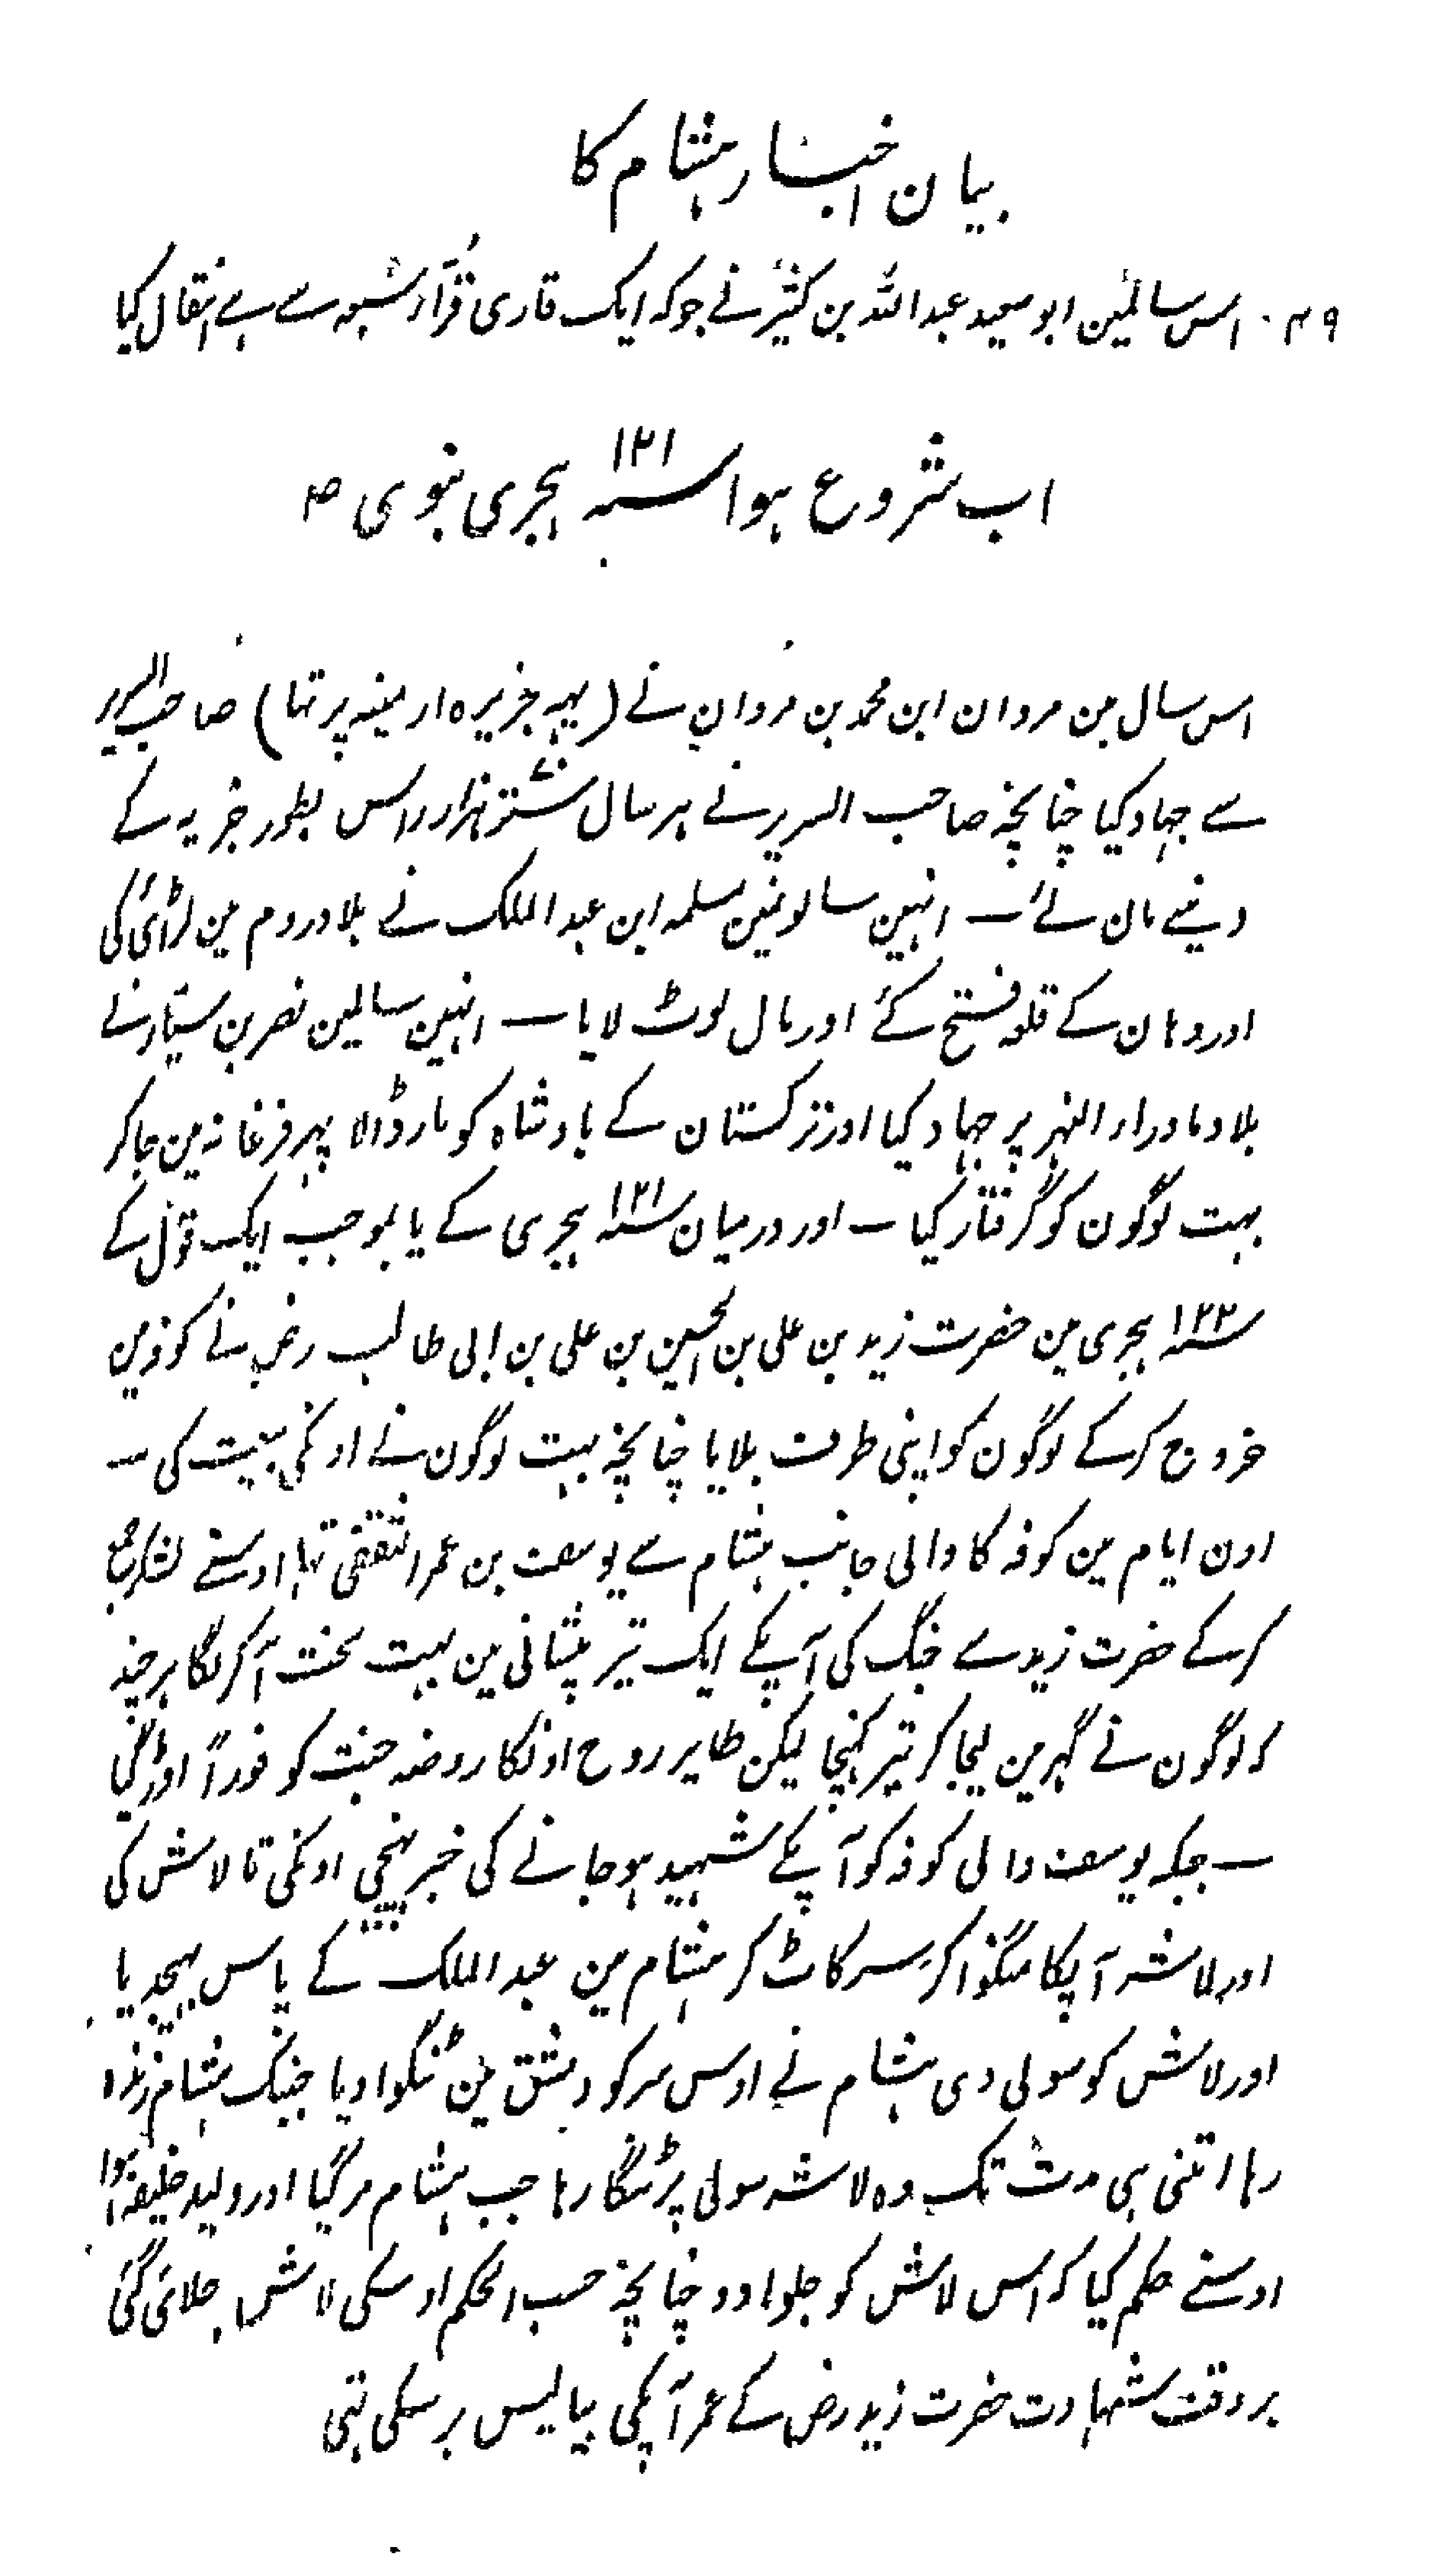 بیان اخبار ہشام کا
۰۴۹ اس سالمین ابو سعید عبداللہ بن کثیر نے جو کہ ایک قاری قرّاء سبعہ سے ہے انتقال کیا
اب شروع ہوا سنہ ۱۲۱ ہجری نبوی ص
اس سال مین مروان ابن محمد بن مروان نے (یہہ جزیرہ ارمینہ پر تہا) صاحب السریر
سے جہاد کیا چنانچہ صاحب السریر نے ہر سال ستر ہزار راس بطور جزیہ کے
دینے مان لئے ــ انہین سالونمین مسلمہ ابن عبد الملک نے بلاد روم مین لڑائی کی
اور وہان کے قلعہ فتح کئے اور مال لوٹ لایا ــ انہین سالمین نصر بن سیّار نے
بلاد ماوراء النہر پر جہاد کیا اور ترکستان کے بادشاہ کو مار ڈالا پہر فرغانہ مین جا کر
بہت لوگون کو گرفتار کیا ــ اور درمیان سنہ ۱۲۱ ہجری کے یا بموجب ایک قول کے
سنہ ۱۲۲ ہجری مین حضرت زید بن علی بن الحسین بن علی بن ابی طالب رضہ نے کوفہ مین
خروج کر کے لوگون کو اپنی طرف بلایا چنانچہ بہت لوگون نے اونکی بیعت کی ــ
اون ایام مین کوفہ کا والی جانب ہشام سے یوسف بن عمر الثقفی تہا اوسنے لشکر جمع
کر کے حضرت زید سے جنگ کی آپکے ایک تیر پیشانی مین بہت سخت آ کر لگا ہر چند
کہ لوگون نے گہر مین لیجا کر تیر کہنچا لیکن طایر روح اونکا روضہ جنت کو فوراً اوڑ گیا
ــ جبکہ یوسف والی کوفہ کو آپکے شہید ہو جانے کی خبر پہنچی اونکی تا لاش کی
اور لاشہ آپکا منگوا کر سر کاٹ کر ہشام بن عبد الملک کے پاس بہیجدیا
اور لاش کو سولی دی ہشام نے اوس سر کو دمشق مین ٹنگوا دیا جبتک ہشام زندہ
رہا اتنی ہی مدت تک وہ لاشہ سولی پر ٹنگا رہا جب ہشام مر گیا اور ولید خلیفہ ہوا
اوسنے حکم کیا کہ اس لاش کو جلوا دو چنانچہ حسب الحکم اوسکی لاش جلائی گئی
بر وقت شہادت حضرت زید رض کے عمر آپکی بیالیس برسکی تہی